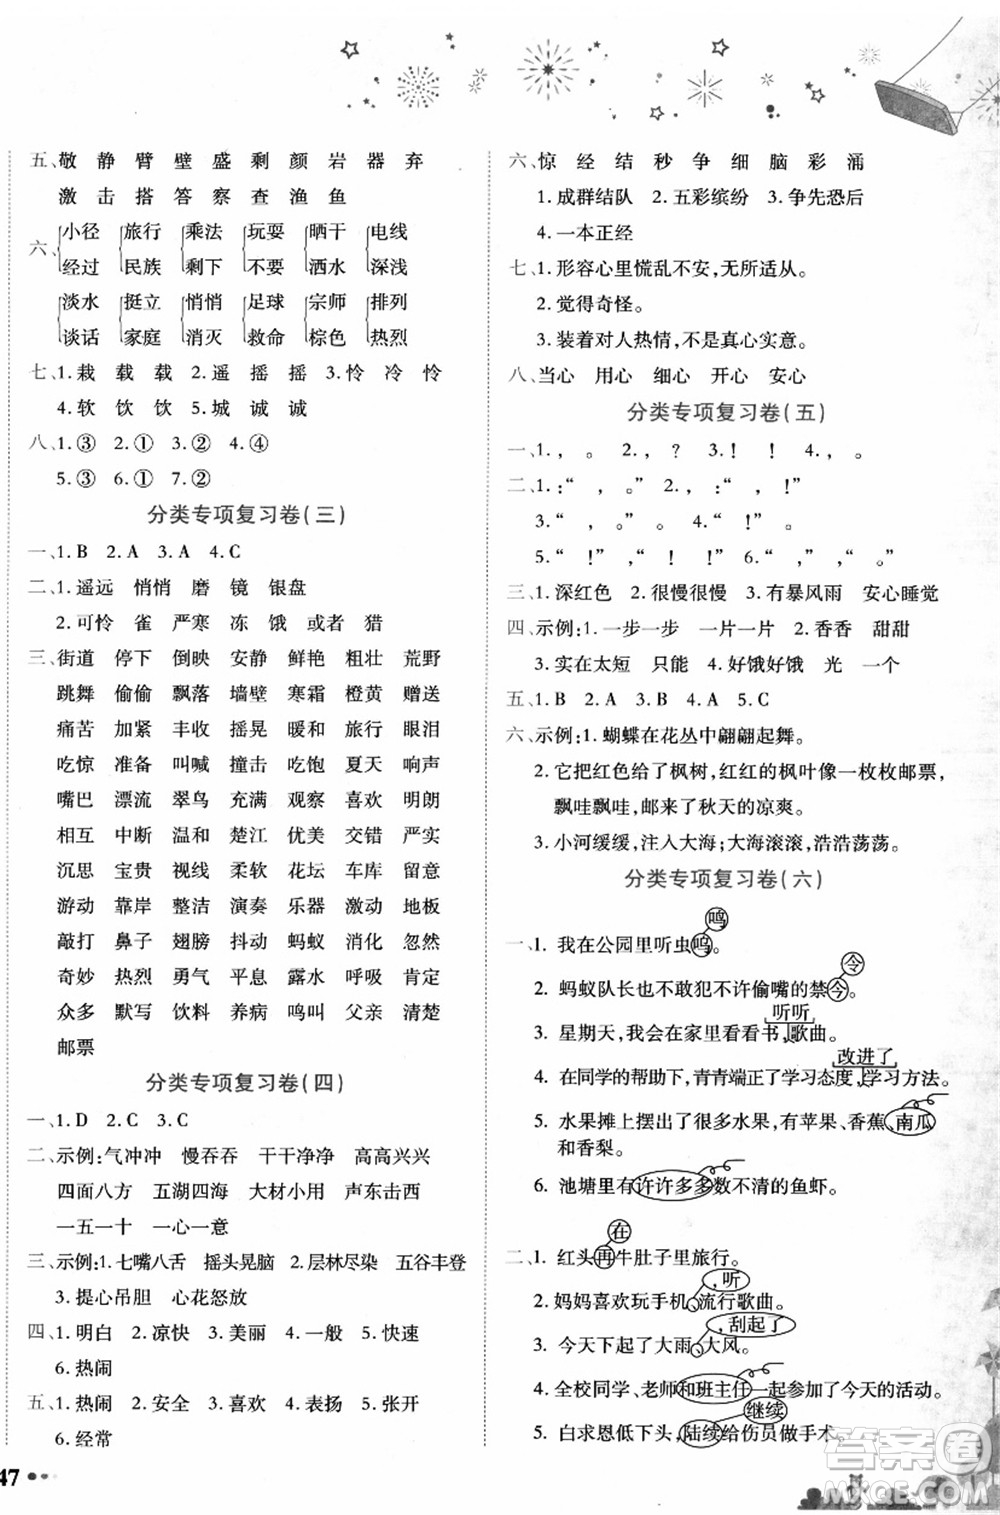 五、敬 静 臂 壁 盛 剩 颜 岩 器 弃
激 击 搭 答 察 查 渔 鱼
六、小径 旅行 乘法 玩耍 晒干 电线
经过 民族 剩下 不要 洒水 深浅
淡水 挺立 悄悄 足球 宗师 排列
谈话 家庭 消灭 救命 棕色 热烈
七、1.栽 载 载 2.遥 摇 摇 3.怜 冷 怜
4.软 饮 饮 5.城 诚 诚
八、1.③ 2.① 3.② 4.④
5.③ 6.① 7.②
分类专项复习卷(三)
一、1. B 2. A 3. A 4. C
二、1.遥远 悄悄 磨 镜 银盘
2.可怜 雀 严寒 冻 饿 或者 猎
三、街道 停下 倒映 安静 鲜艳 粗壮 荒野
跳舞 偷偷 飘落 墙壁 寒霜 橙黄 赠送
痛苦 加紧 丰收 摇晃 暖和 旅行 眼泪
吃惊 准备 叫喊 撞击 吃饱 夏天 商店
嘴巴 漂流 翠鸟 充满 观察 喜欢 明朗
相互 中断 温和 楚江 优美 交错 严实
沉思 面包 视线 柔软 花坛 车库 危险
游动 靠岸 整洁 演奏 乐器 激动 地板
敲打 鼻子 翅膀 示意 蚂蚁 消化 忽然
奇妙 热烈 勇气 平息 露水 呼吸 肯定
众多 默写 饮料 养病 骄傲 父亲 清楚
邮票
分类专项复习卷(四)
一、1. D 2. C 3. C
二、示例:气冲冲 慢吞吞 干干净净 高高兴兴
四面八方 五湖四海 大材小用 声东击西
一五一十 一心一意
三、示例:1.七嘴八舌 摇头晃脑 2.层林尽染 五谷丰登
3.提心吊胆 心花怒放
四、1.明白 2.凉快 3.美丽 4.招引 5.快速
6.热闹
五、1.热闹 2.安全 3.喜欢 4.表扬 5.张开
6.经常
47
六、惊 经 结 秒 争 细 脑 彩 涌
1.成群结队 2.五彩缤纷 3.争先恐后
4.一本正经
七、1.形容心里慌乱不安,无所适从。
2.觉得奇怪。
3.装着对人热情,不是真心实意。
八、当心 用心 细心 开心 安心
分类专项复习卷(五)
一、1. , 。 2. , ? 3. ! ! 4. , 。
二、1. :“ , 。” 2.“ , !”
3.“ , 。” 4. :“ , !”
5.“ !” “ !” 6.“ , !”
三、1.深红色 2.很慢很慢 3.有暴风雨 安心睡觉
四、示例:1.一步一步 一片一片 2.香香 甜甜
3.实在太短 只能 4.好饿好饿 光 一个
五、1. B 2. A 3. A 4. A 5. C
六、示例:1.蝴蝶在花丛中翩翩起舞。
2.它把红色给了枫树,红红的枫叶像一枚枚邮票,
飘哇飘哇,邮来了秋天的凉爽。
3.小河缓缓,注入大海;大海滚滚,浩浩荡荡。
分类专项复习卷(六)
鸣
一、1. 我在公园里听虫呜。
令
2. 蚂蚁队长也不敢犯不许偷嘴的禁今。
听听
3. 星期天,我会在家里看看书,歌曲。
改进了
4. 在同学的帮助下,青青端正了学习态度,学习方法。
5. 水果摊上摆了很多水果,有苹果、香蕉、南瓜
和香梨。
6. 池塘里有许许多多数不清的鱼虾。
在
二、1. 红头再牛肚子里旅行。
,听
2. 妈妈喜欢玩手机、流行歌曲。
,刮起了
3. 今天下起了大雨、大风。
4. 全校同学、老师和班主任一起参加了今天的活动。
继续
5. 白求恩低下头,陆续给伤员做手术。
答案圈
MXQE.COM